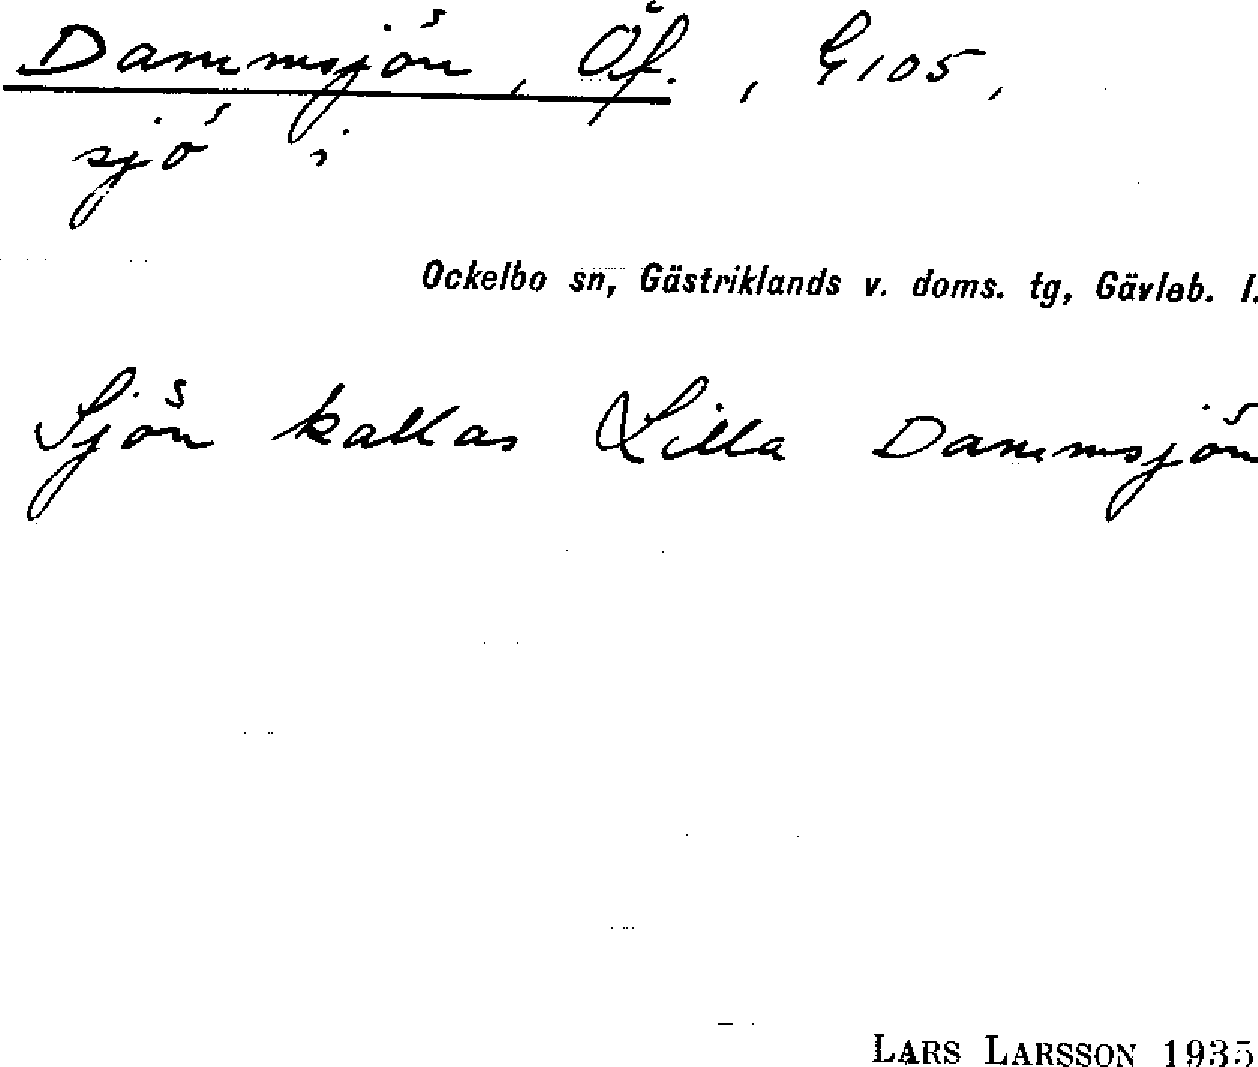 Dammsjön, Öf., G105,
sjö i
Ockelbo sn, Gästriklands v. doms. tg, Gävleb. l.
Sjön kallas Lilla Dammsjön
LARS LARSSON 1935